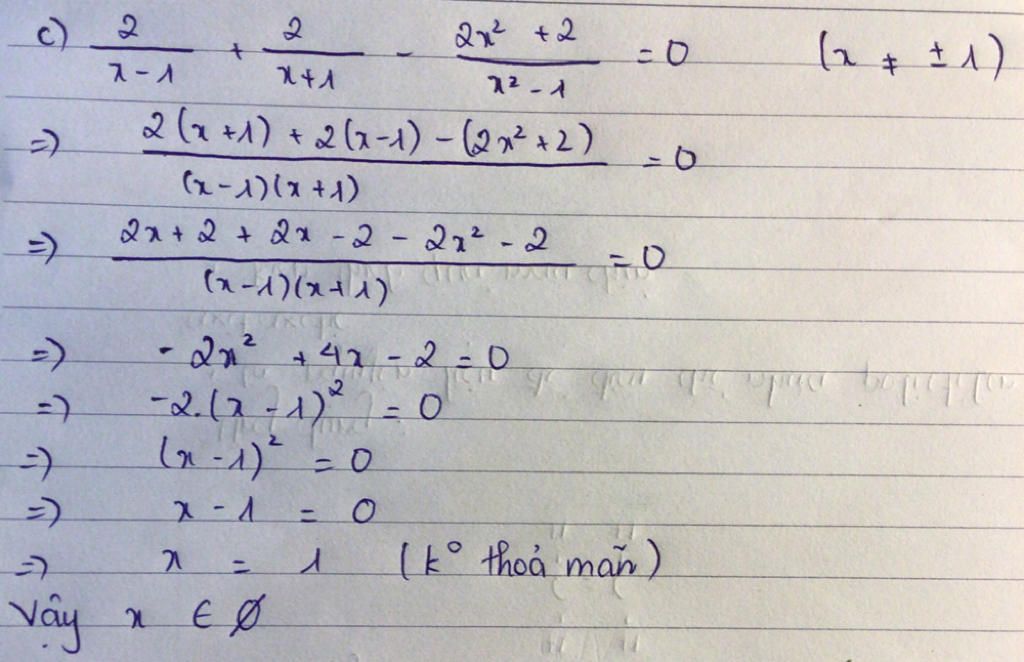 c) 2/(x-1) + 2/(x+1) - (2x² + 2)/(x² - 1) = 0 (x ≠ ± 1)
=> (2(x+1) + 2(x-1) - (2x²+2))/((x-1)(x+1)) = 0
=> (2x + 2 + 2x - 2 - 2x² - 2)/((x-1)(x+1)) = 0
=> -2x² + 4x - 2 = 0
=> -2.(x-1)² = 0
=> (x-1)² = 0
=> x - 1 = 0
=> x = 1 (k° thoả mãn)
Vậy x ∈ ∅